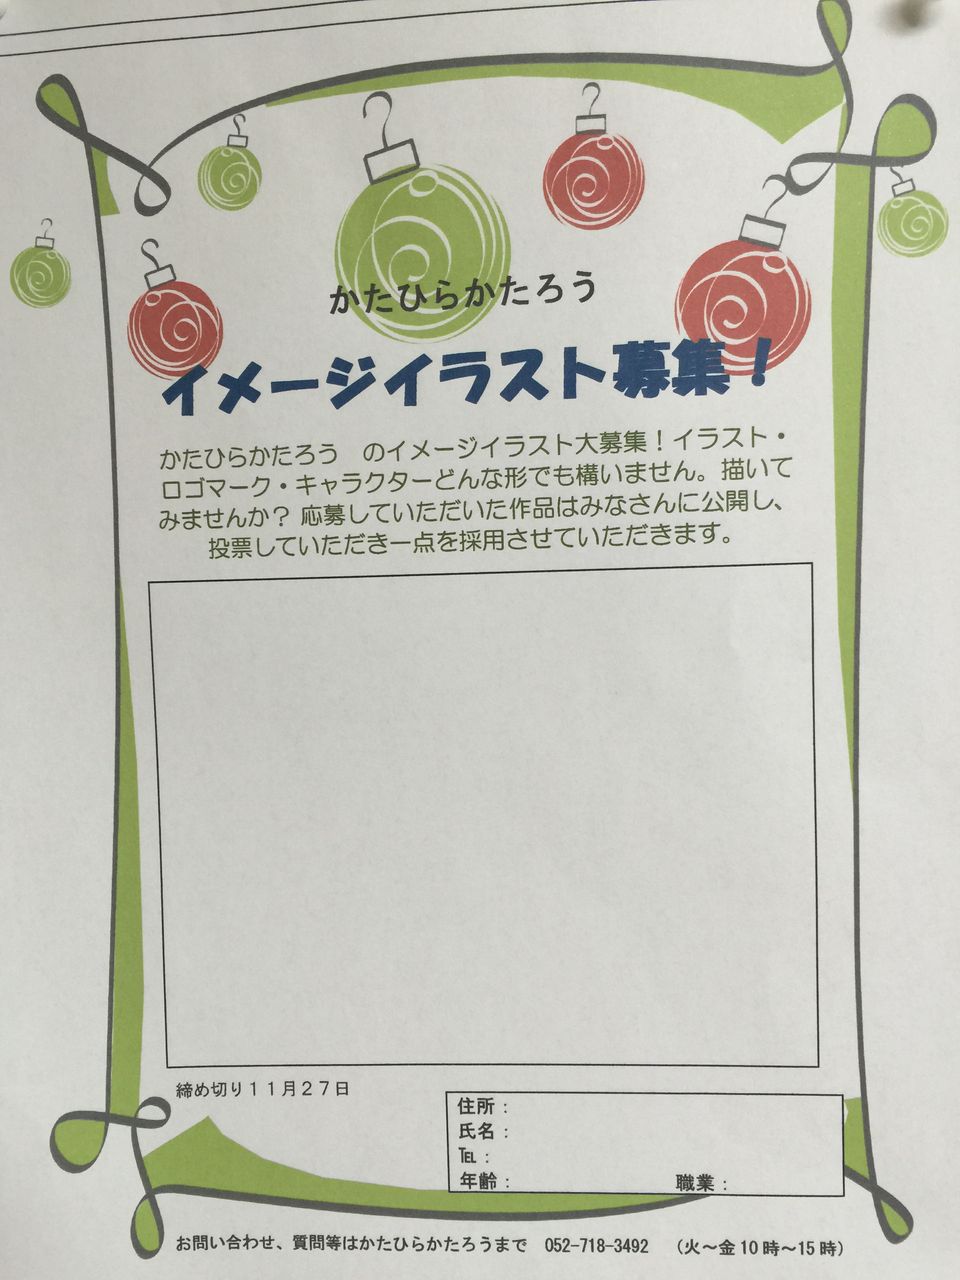 かたひらかたろう
イメージイラスト募集！
かたひらかたろう　のイメージイラスト大募集！イラスト・
ロゴマーク・キャラクターどんな形でも構いません。描いて
みませんか？ 応募していただいた作品はみなさんに公開し、
投票していただき一点を採用させていただきます。
締め切り１１月２７日
住所：
氏名：
℡：
年齢：　職業：
お問い合わせ、質問等はかたひらかたろうまで　052-718-3492　（火～金 10 時～15 時）